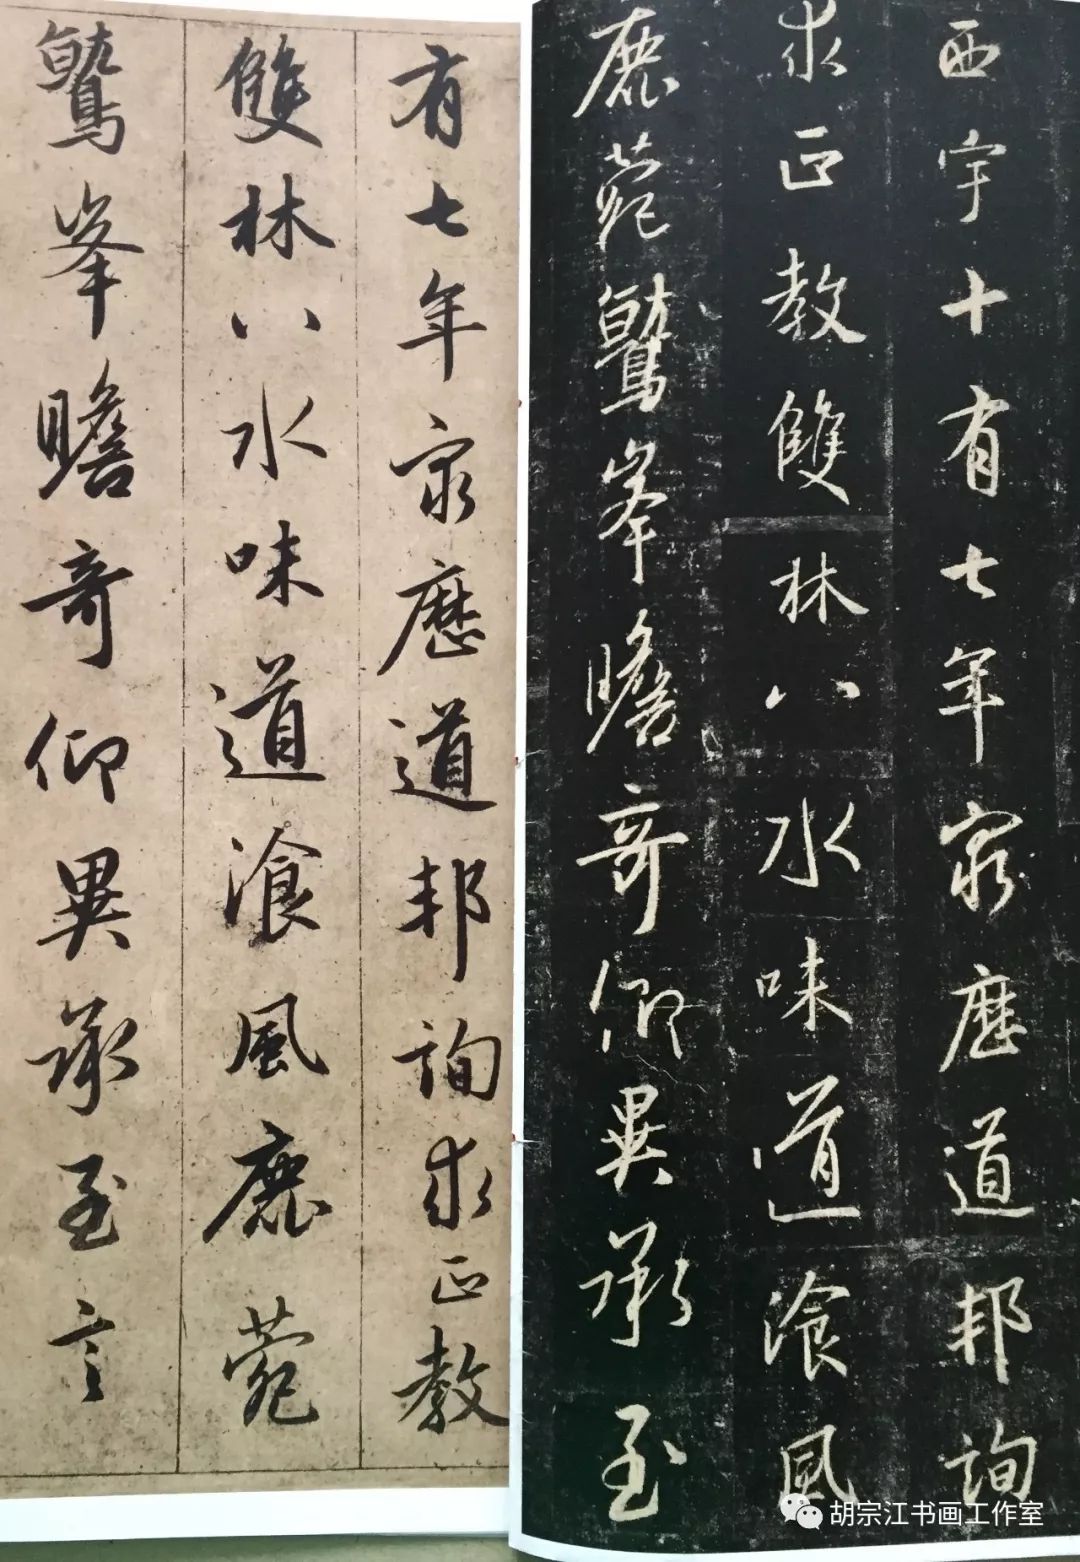 西宇十有七年窮歷道邦詢
求正教雙林八水味道飡風
鹿菀鷲峯瞻奇仰異承至
有七年窮歷道邦詢求正教
雙林八水味道飡風鹿菀
鷲峯瞻奇仰異承至言
胡宗江书画工作室